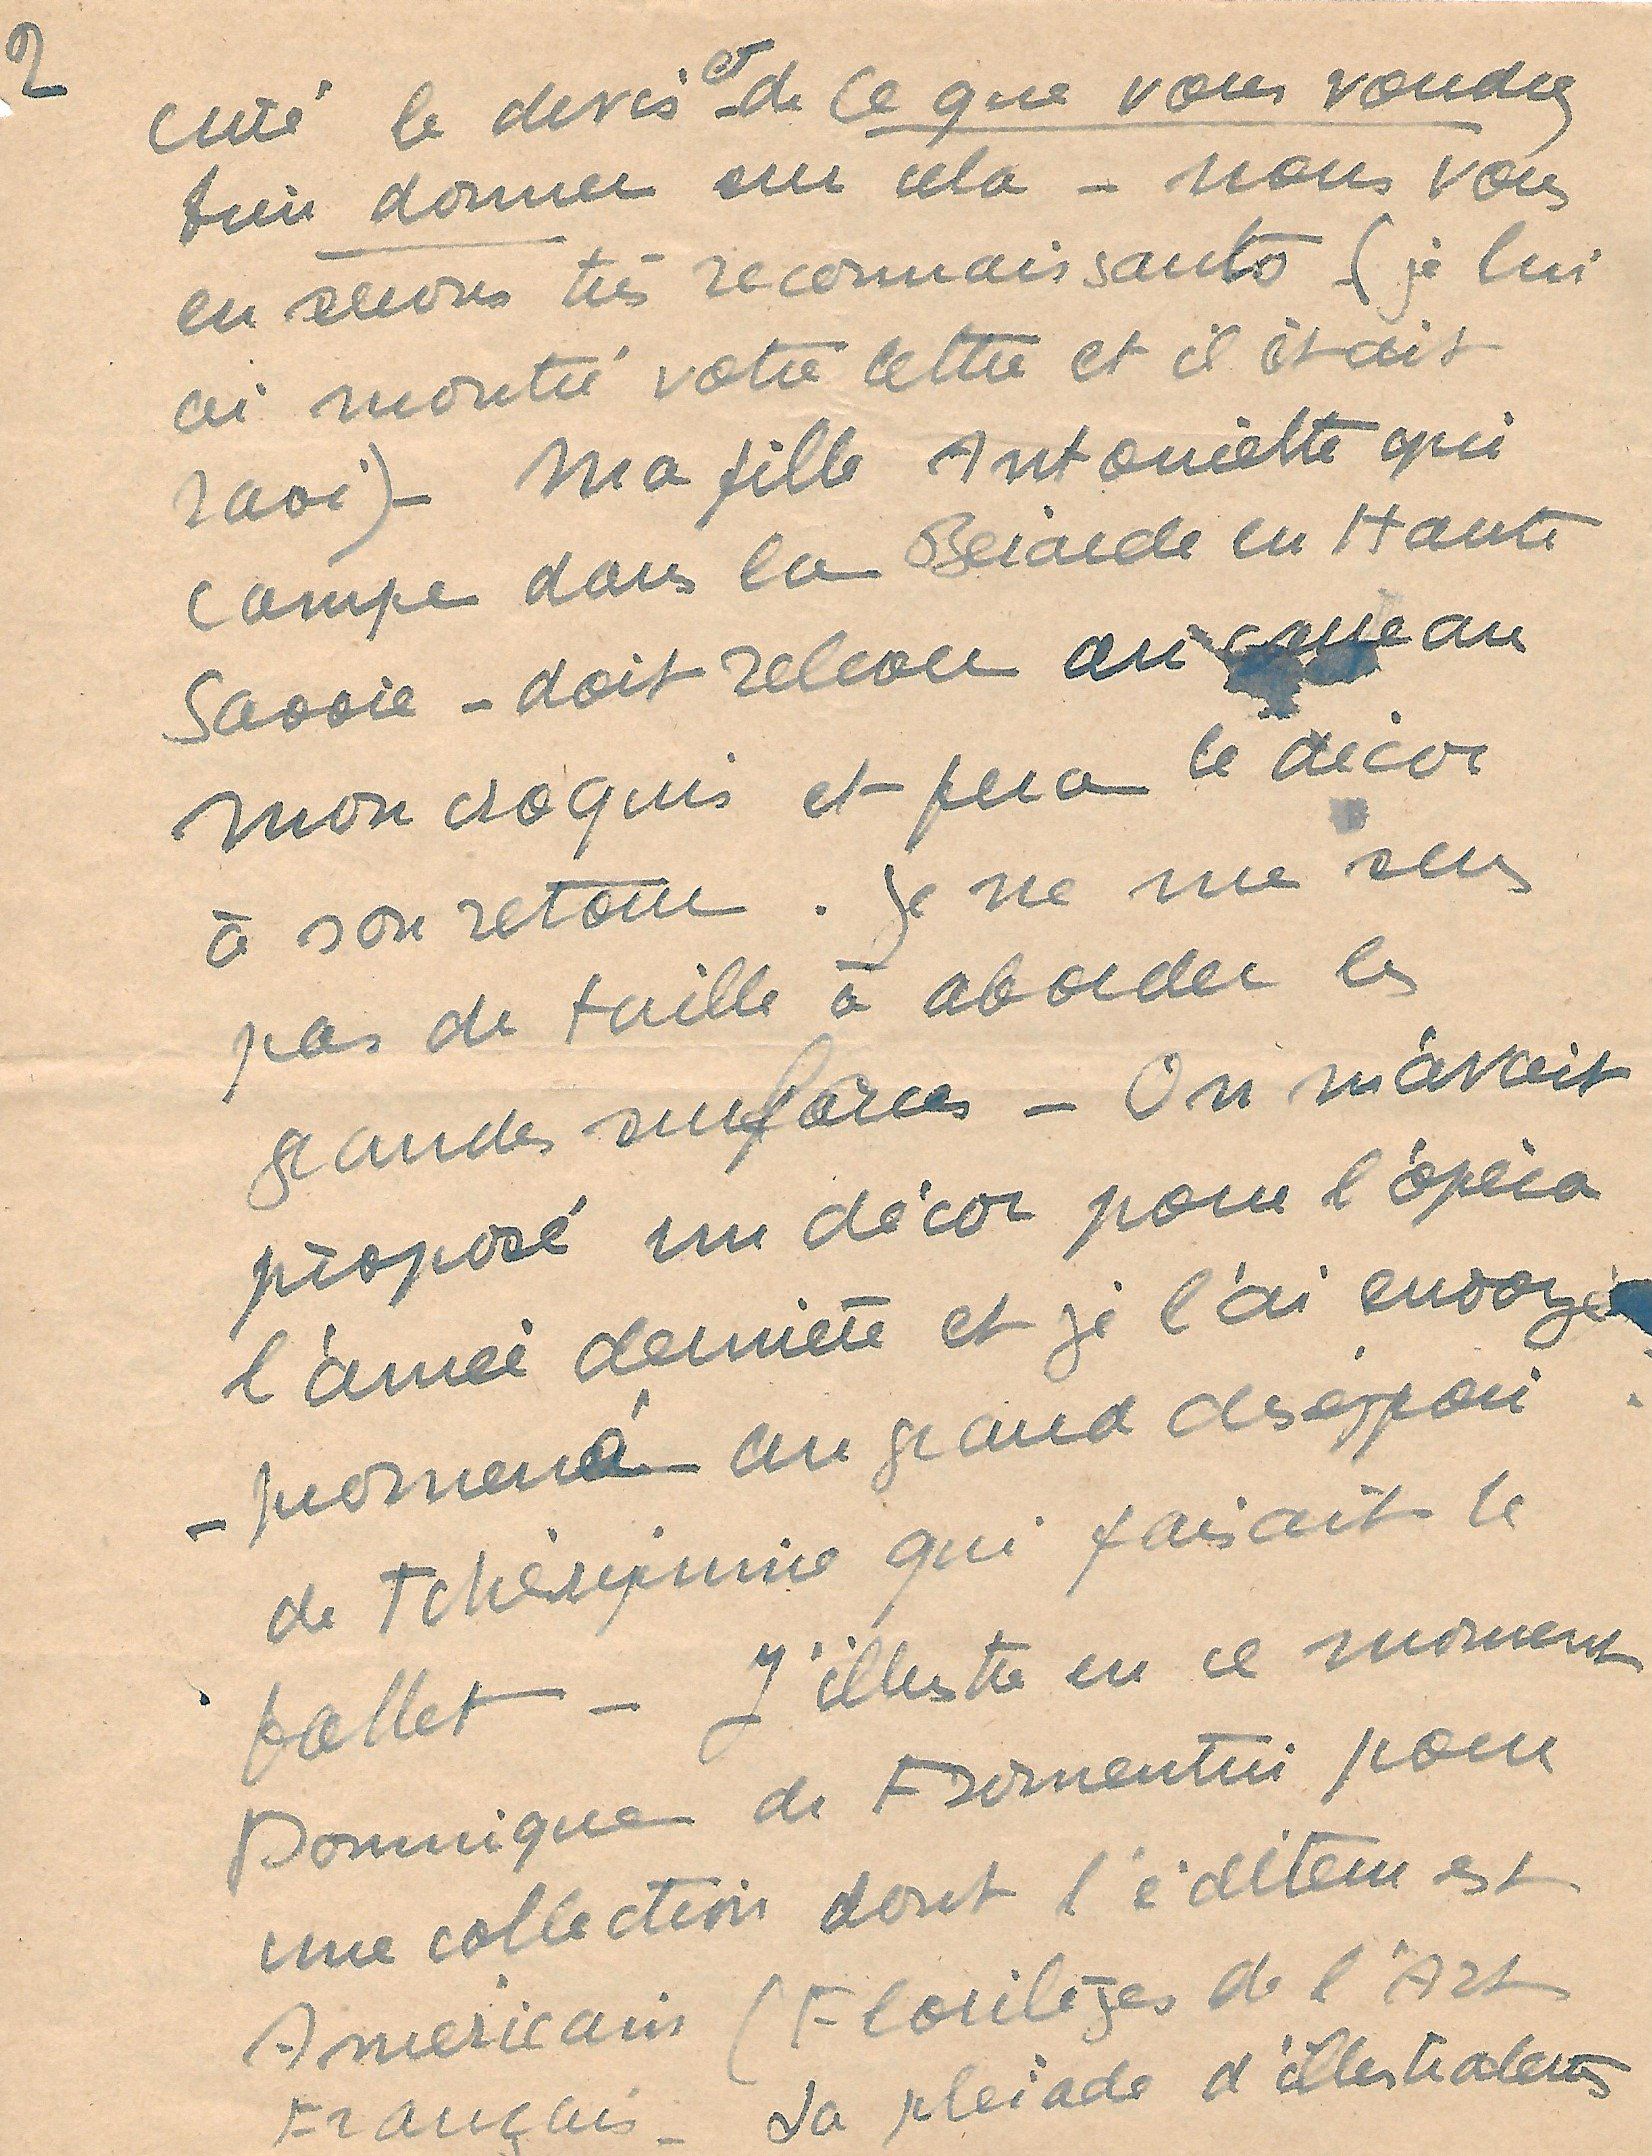 2
cuté le devis et de ce que vous voudrez
bien donner sur cela - nous vous
en serons très reconnaissants - (je lui
ai montré votre lettre et il était
ravi) - Ma fille Antoinette qui
campe dans la Berarde en Haute
Savoie - doit relever au carreau
mon croquis et fera le décor
à son retour . Je ne me sens
pas de taille à aborder les
grandes surfaces - On m'avait
proposé un décor pour l'opéra
l'année dernière et je l'ai envoyé
- promené au grand désespoir
de Tcherepnine qui faisait le
ballet - J'illustre en ce moment
Dominique de Fromentin pour
une collection dont l'éditeur est
Américain (Florilèges de l'Art
Français - La pleiade d'illustrateurs